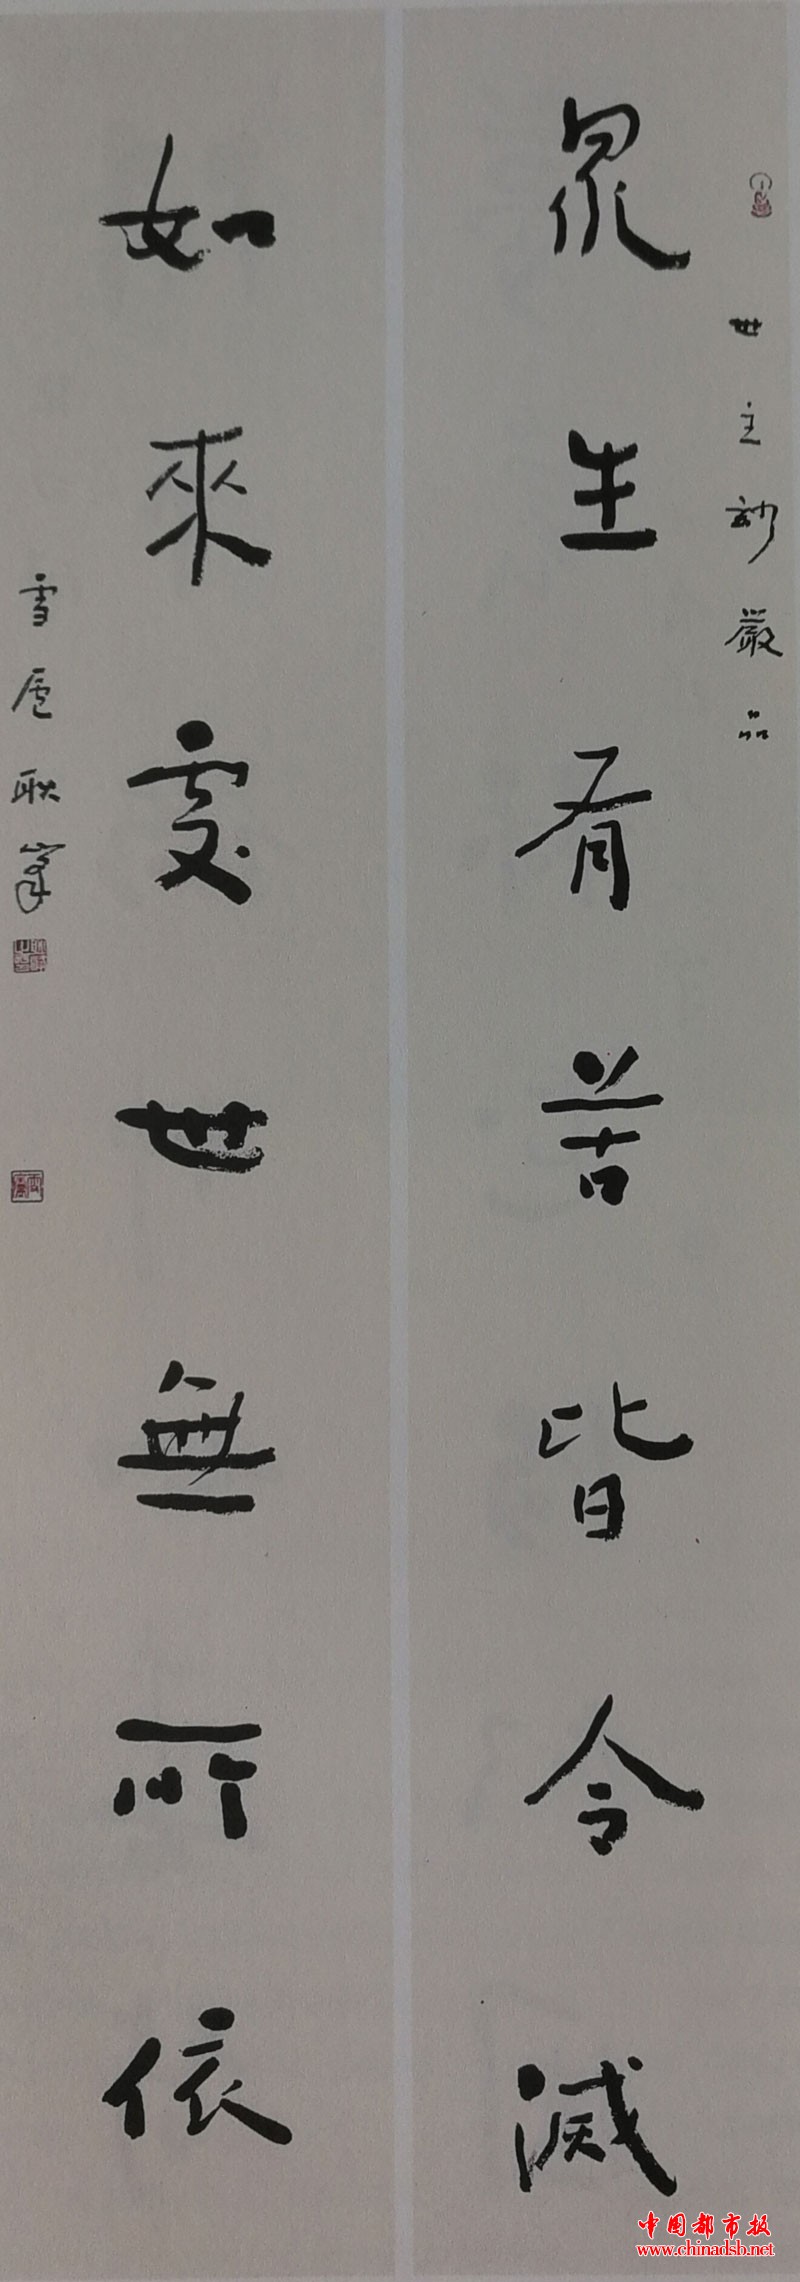 世主妙嚴品
眾生有苦皆令滅
如來處世無所依
雪廬耿峯
中国都市报
www.chinadsb.net